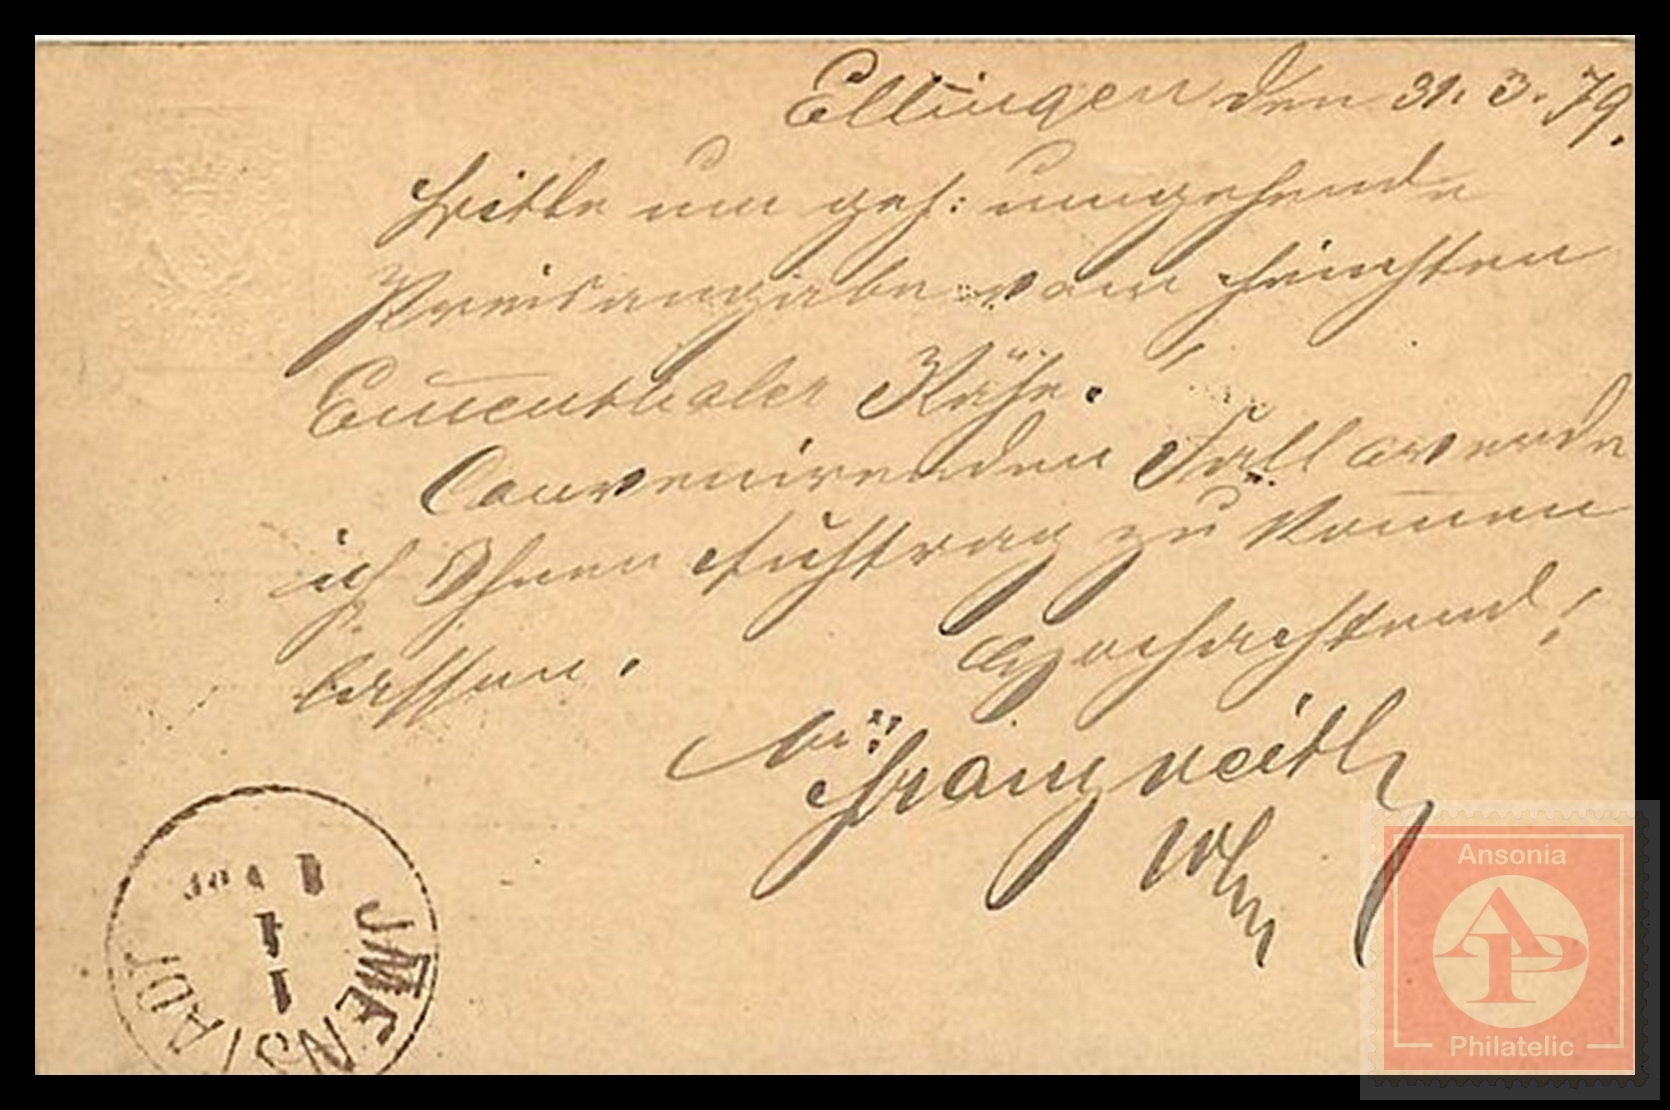 Ellingen den 31. 3. 79.
Bitte um gef: umgehende
Preisangabe vom feinsten
Ementhaler Käse.
Convenirenden Fall werde
ich Ihnen Auftrag zu komen
lassen.
Hochachtend!
Franz Veith
IMMENSTADT
1
4
Ansonia
AP
Philatelic